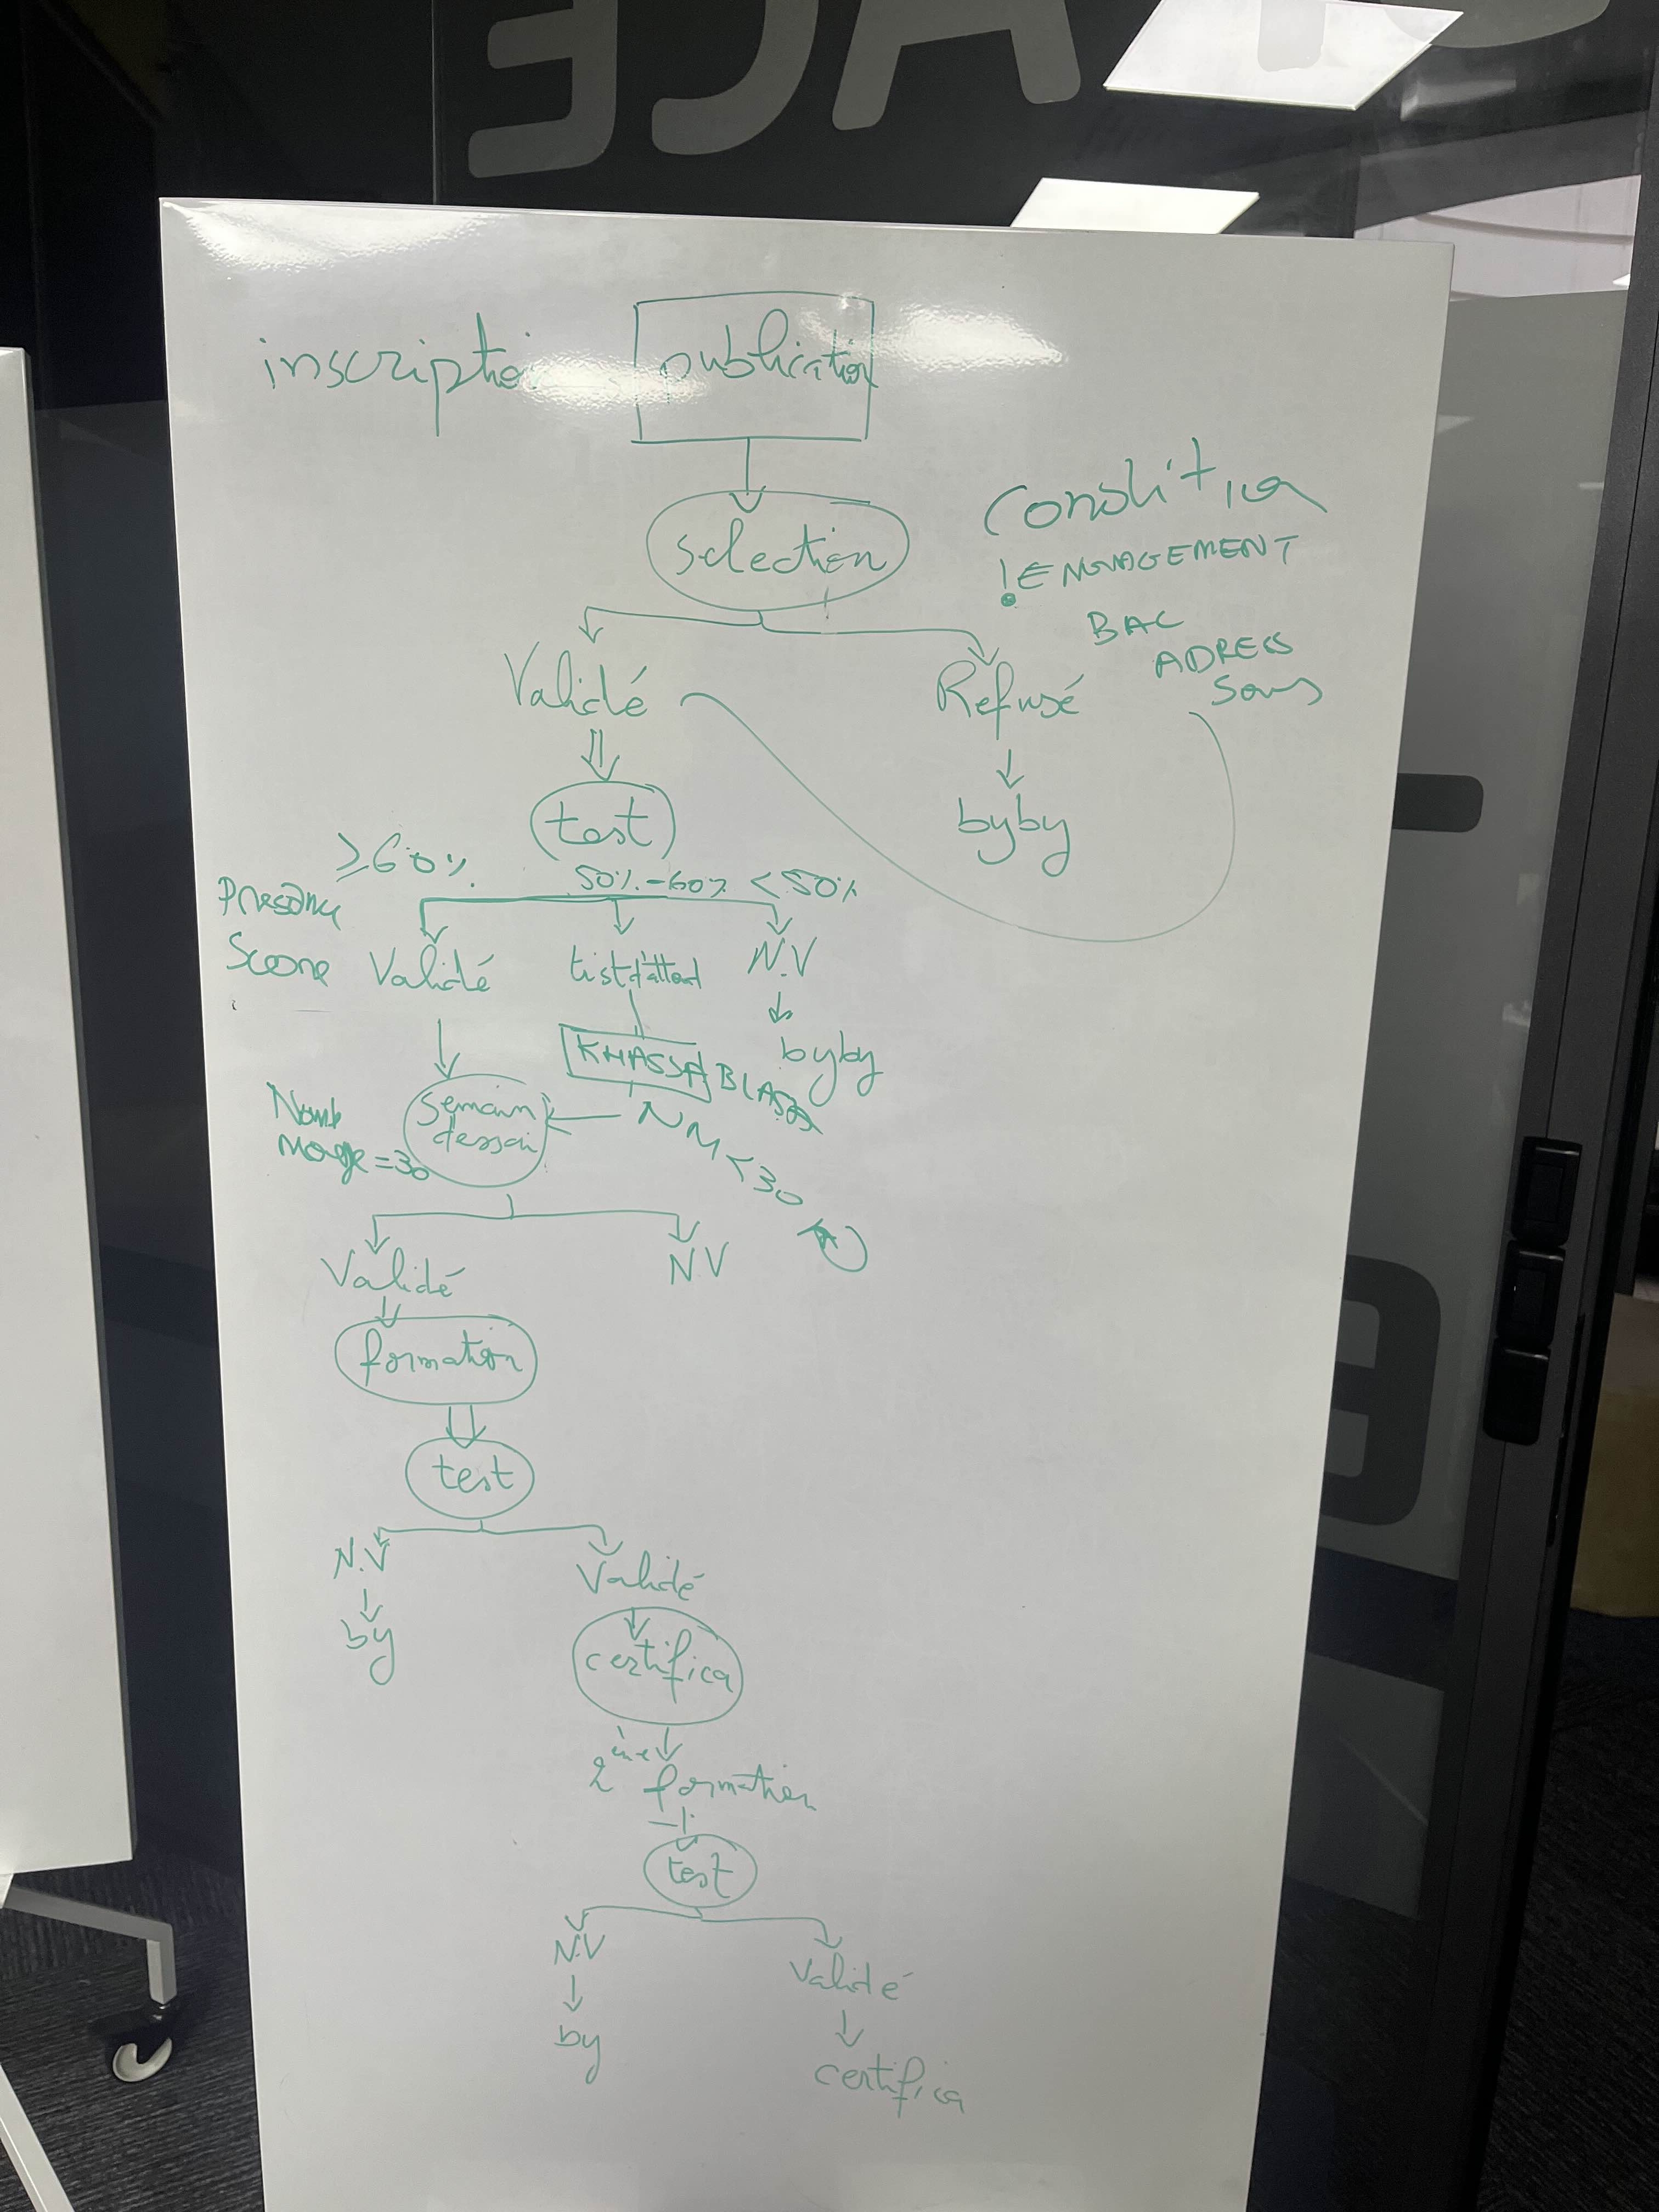 inscription publication
selection
condition
!ENGAGEMENT
BAC
ADRESS
Validé
Refusé
byby
test
≥60%
50%-60%
<50%
Score
Validé
list d'attend
N.V
byby
KHASSA BLASSA
semain
dessai
NM<30
=30
Validé
N.V
formation
test
N.V
Validé
by
certifica
2ème formation
test
N.V
Validé
by
certifica